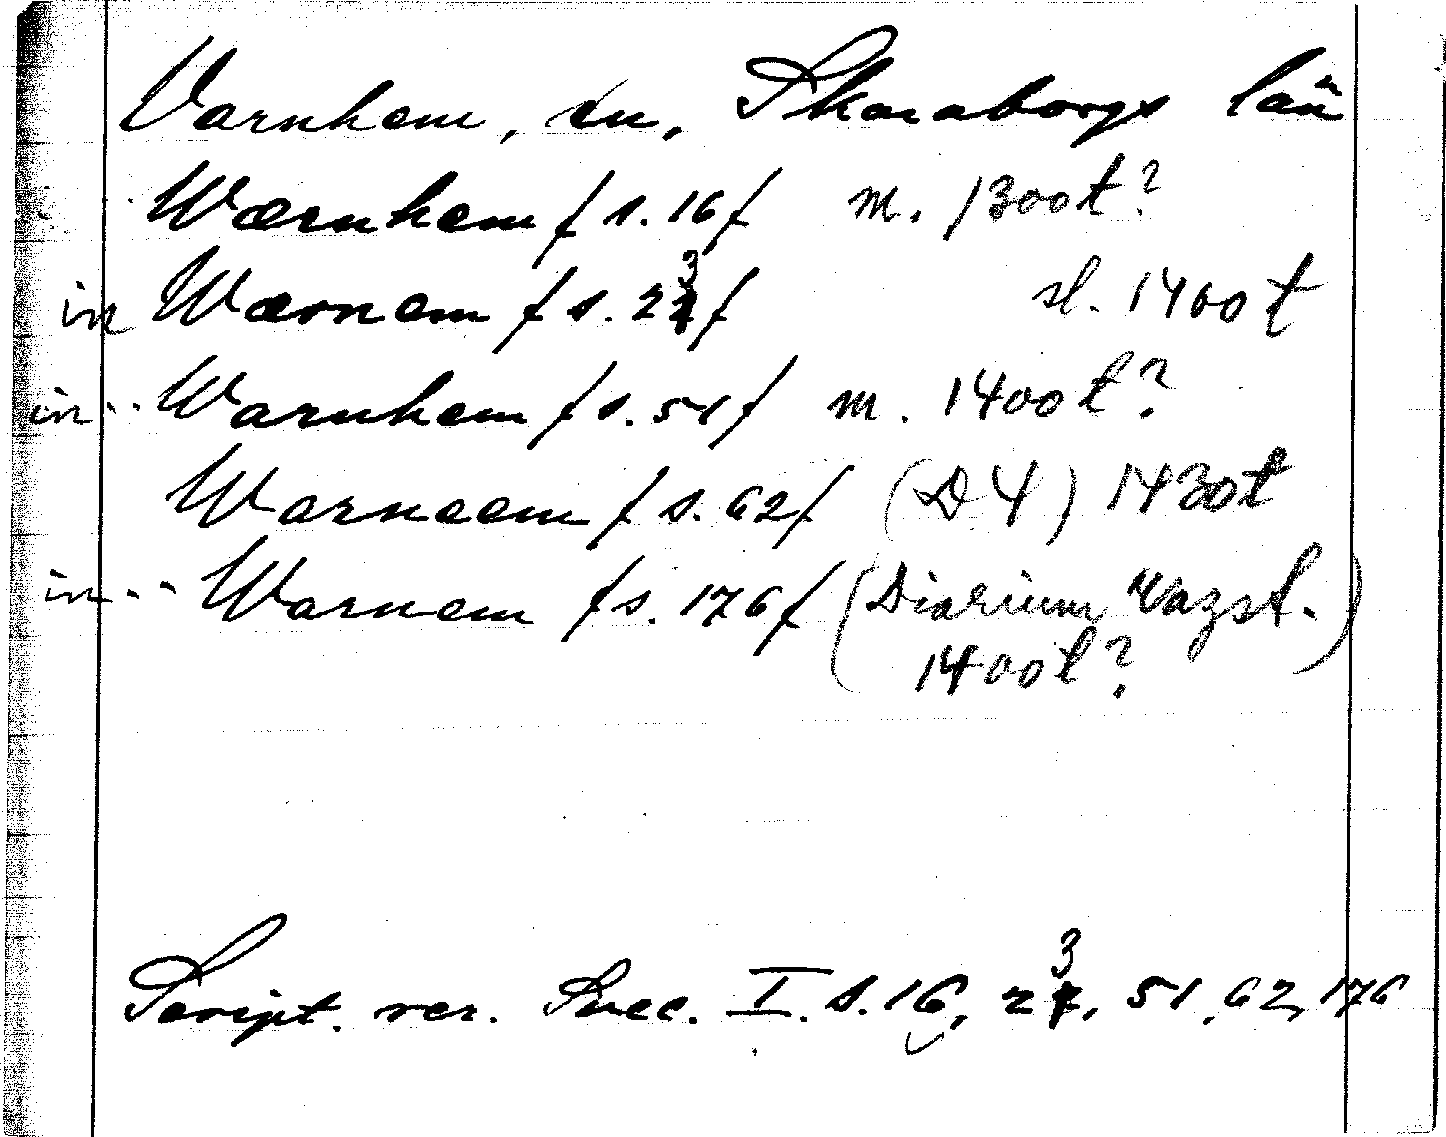 Varnhem, sn, Skaraborgs län
Wærnhem / s. 16 / m. 1300t?
in Wærnem / s. 23 / sl. 1400t
in Warnhem / s. 51 / m. 1400t?
Warneem / s. 62 / (D4) 1430t
in Warnem / s. 176 / (Diarium Vazst.)
1400t?
Script. rer. Svec. I. s. 16, 23, 51, 62, 176